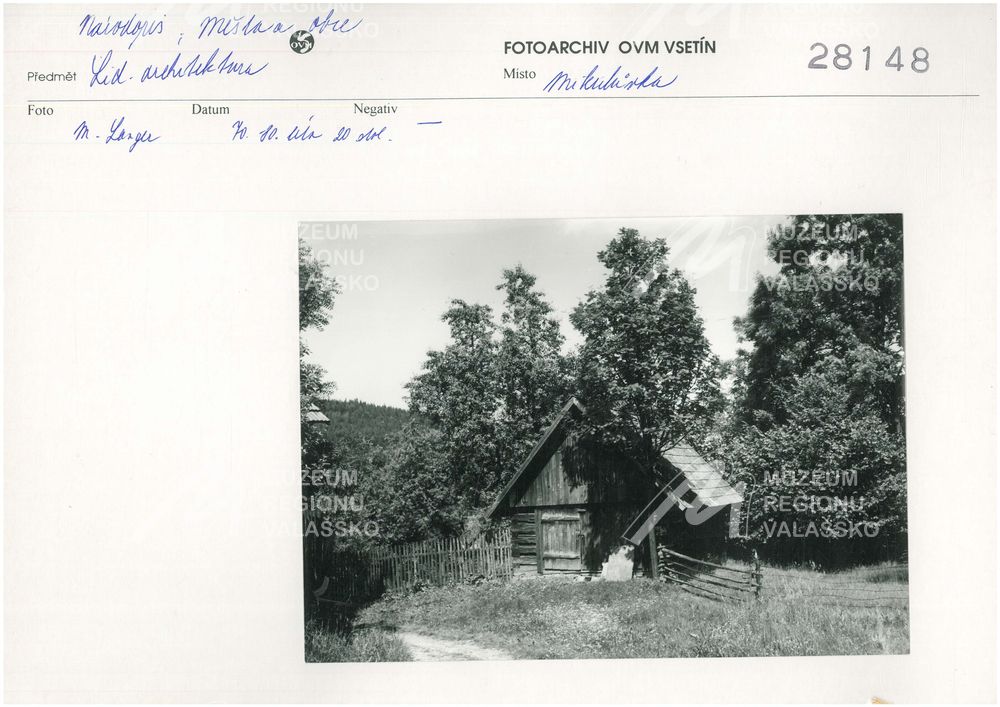 Národopis; Města a obce
OVM
FOTOARCHIV OVM VSETÍN
28148
Předmět Lid. architektura
Místo Mikulůvka
Foto Datum Negativ
M. Langer 70. 80. léta 20 stol. —
MUZEUM REGIONU VALAŠSKO
MUZEUM REGIONU VALAŠSKO
MUZEUM REGIONU VALAŠSKO
MUZEUM REGIONU VALAŠSKO